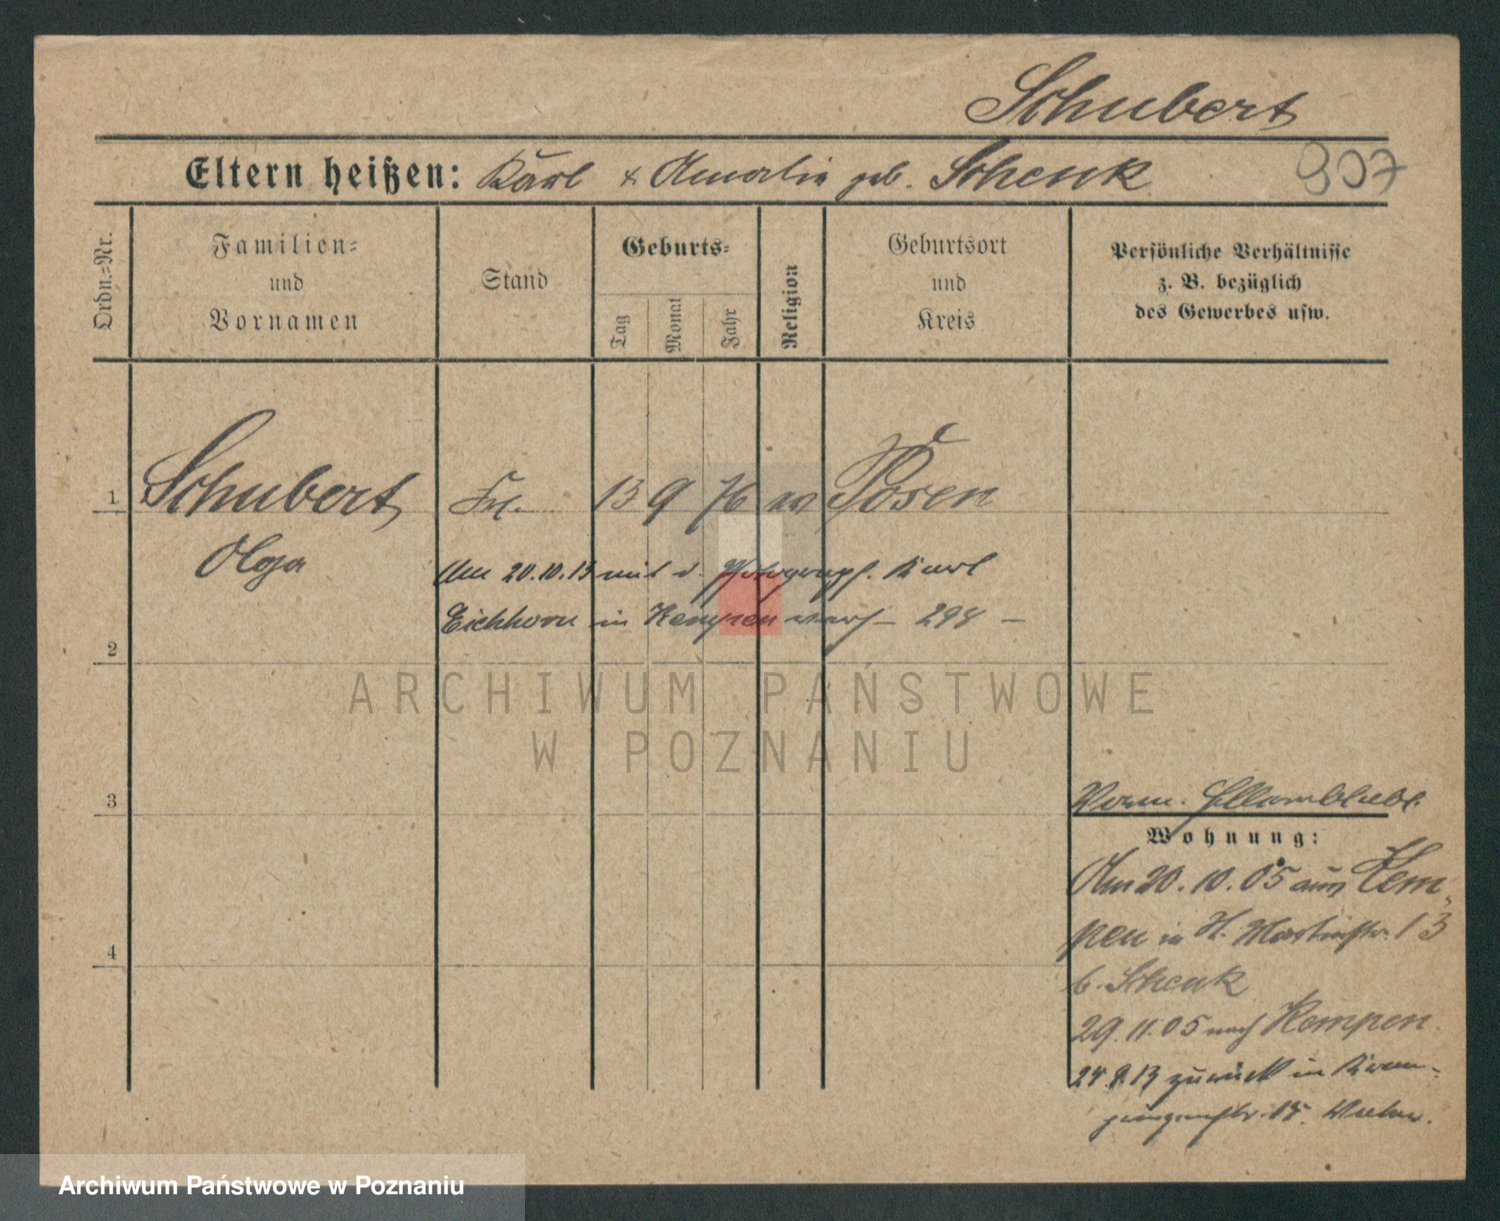 Schubert
Eltern heißen: Karl & Amalia geb. Schenk
907
Ordn.-Nr.
Familien-
und
Vornamen
Stand
Geburts-
Tag
Monat
Jahr
Religion
Geburtsort
und
Kreis
Persönliche Verhältnisse
z. B. bezüglich
des Gewerbes usw.
1 Schubert Frl. 13 9 76 ev Posen
Olga
Am 20.10.13 mit d. Photograph. Karl
Eichhorn in Kempen verh – 298 –
2
3
4
Wohnung:
Am 20.10.05 aus Kem-
pen in St. Martinstr. 13
b. Schenk
29.11.05 nach Kempen.
24.9.13 zurück in
15.
ARCHIWUM PAŃSTWOWE
W POZNANIU
Archiwum Państwowe w Poznaniu